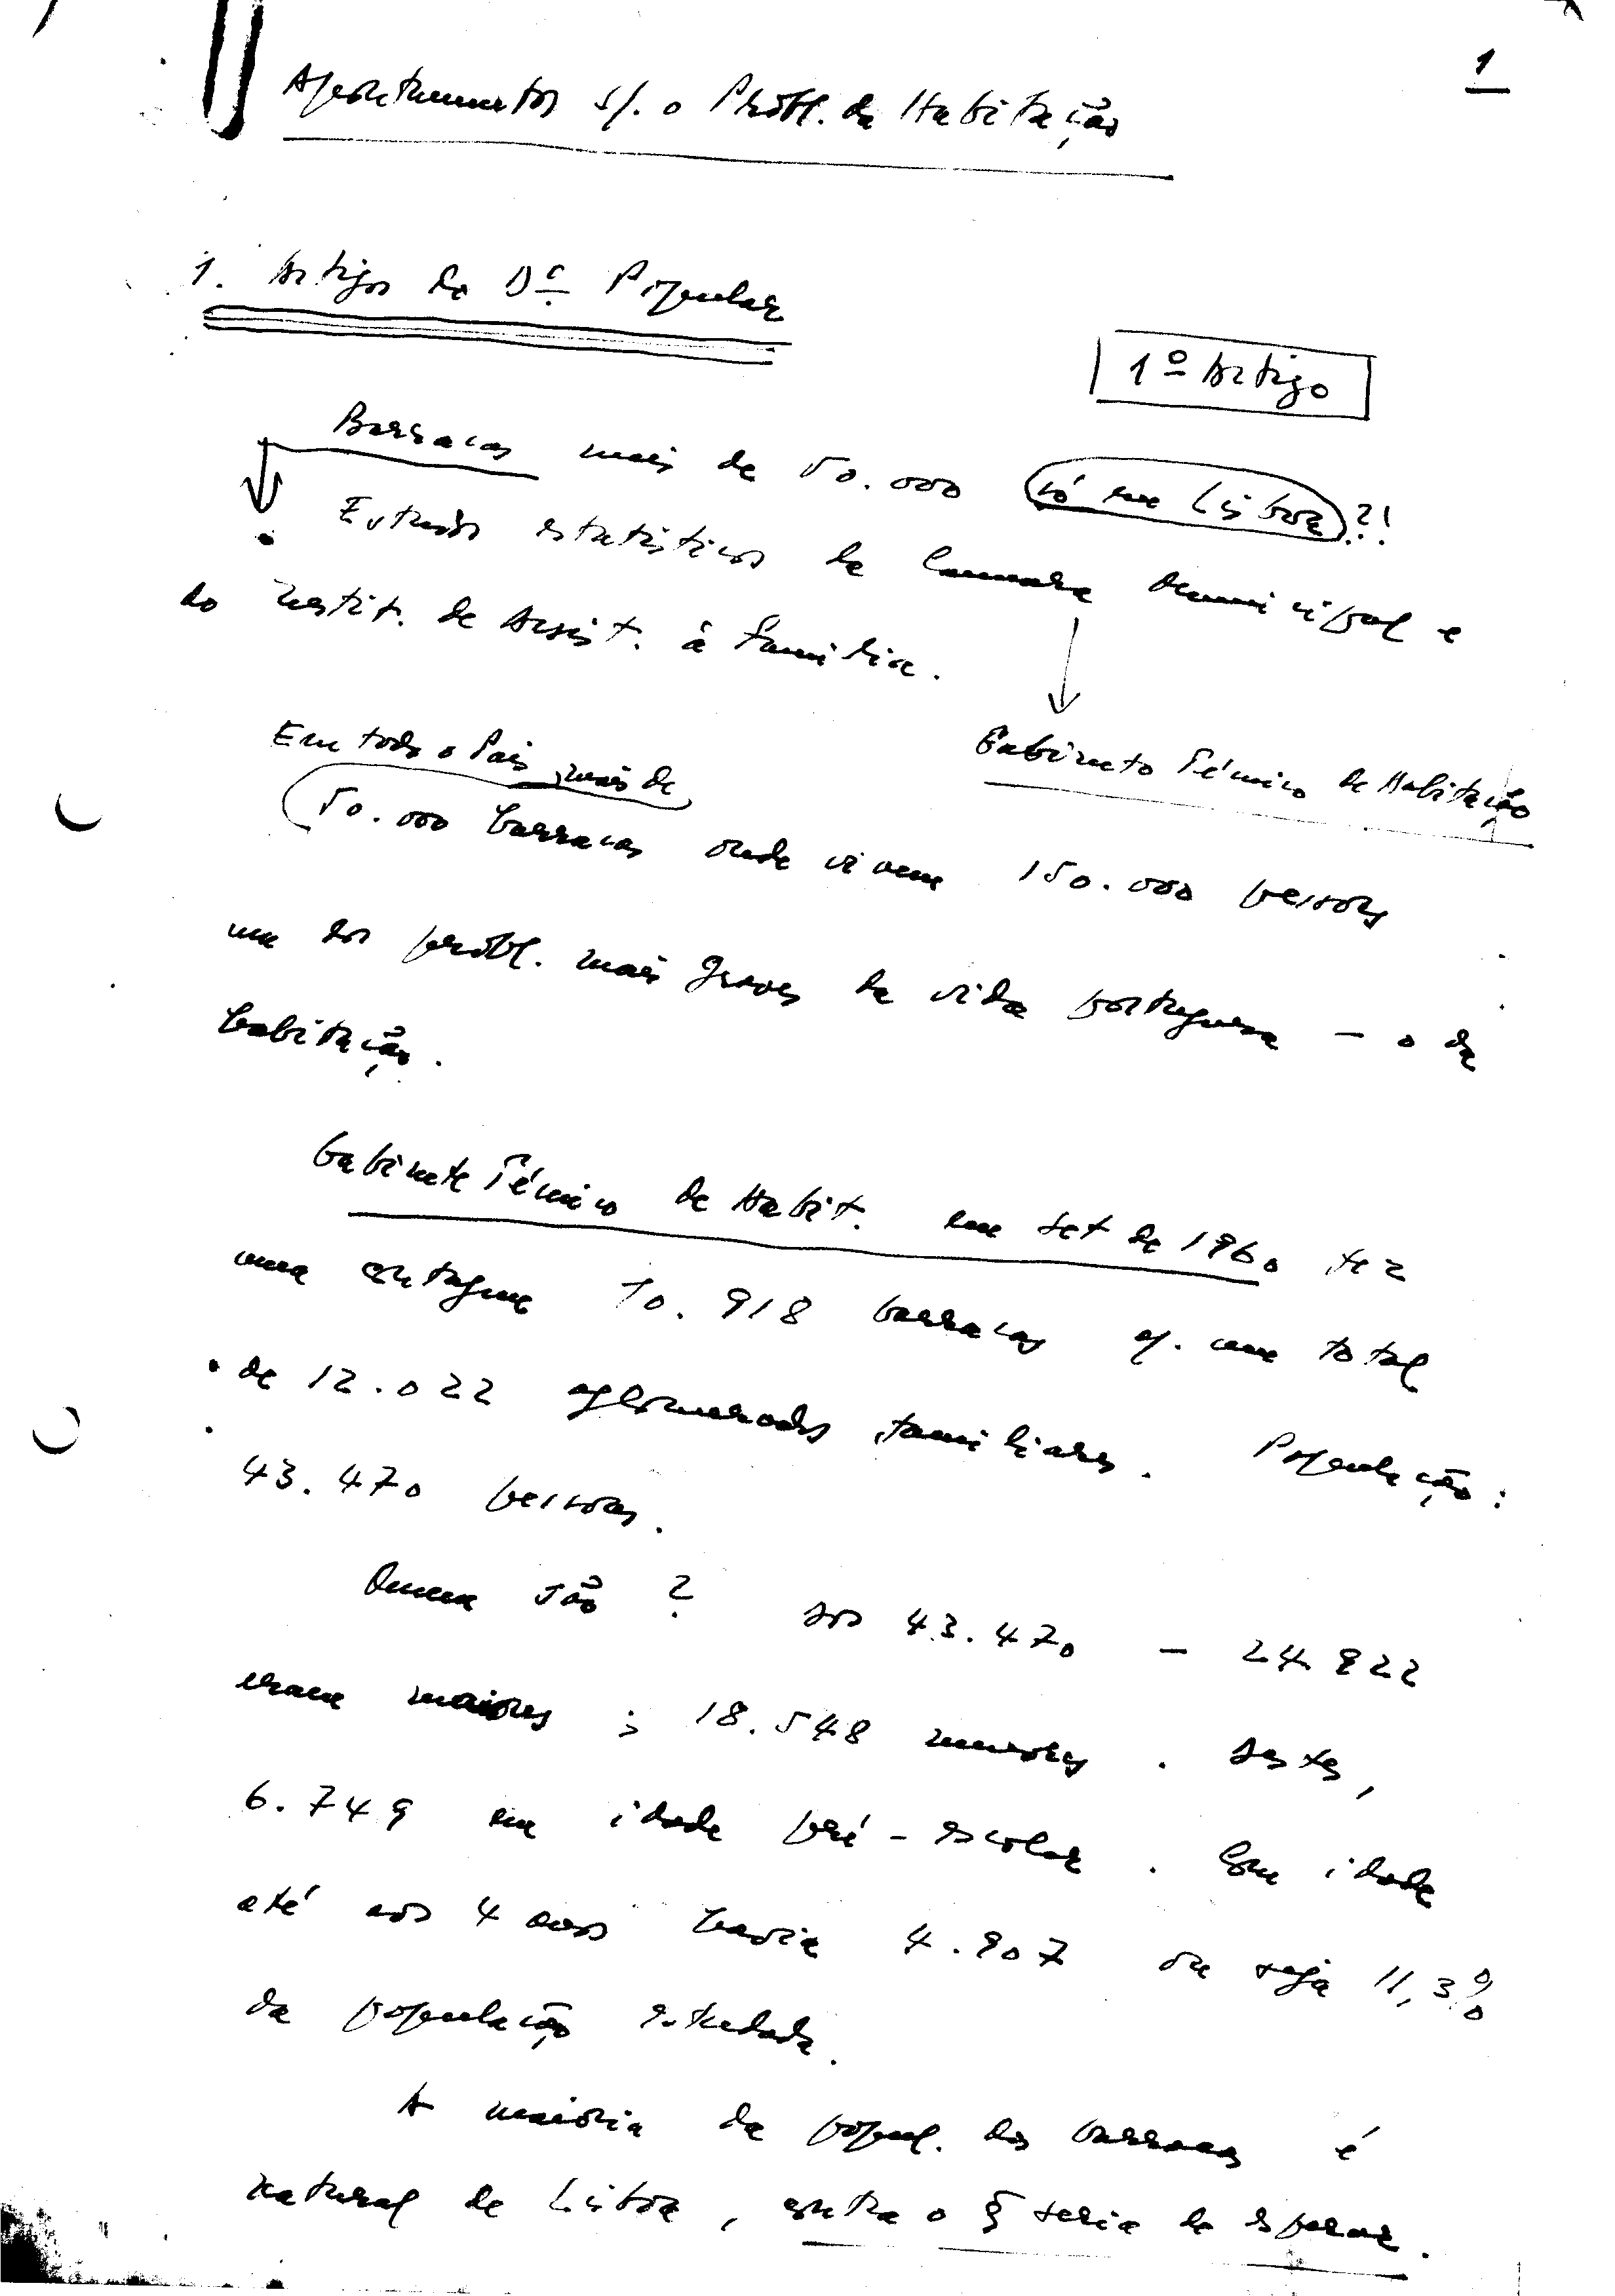 1
Apontamentos s/. o Probl. da Habitação
1. Artigos do D.º Popular
1º Artigo
Barracas mais de 50.000 só em Lisboa?!
Estudos estatísticos da Camara Municipal e
do Instit. de Assist. à Família.
Gabinete Técnico de Habitação
Em todo o País mais de
50.000 barracas onde vivem 150.000 pessoas
um dos probl. mais graves da vida portuguesa – o da
habitação.
Gabinete Técnico de Habit. em set de 1960 fez
uma contagem 10.918 barracas c/. um total
de 12.022 aglomerados familiares. População:
43.470 pessoas.
Quem são? dos 43.470 – 24.922
eram maiores; 18.548 menores. Destes,
6.749 em idade pré-escolar. Com idade
até aos 4 anos havia 4.907 ou seja 11,3%
da população estudada.
A maioria da popul. das barracas é
natural de Lisboa, contra o q̃ seria de esperar.